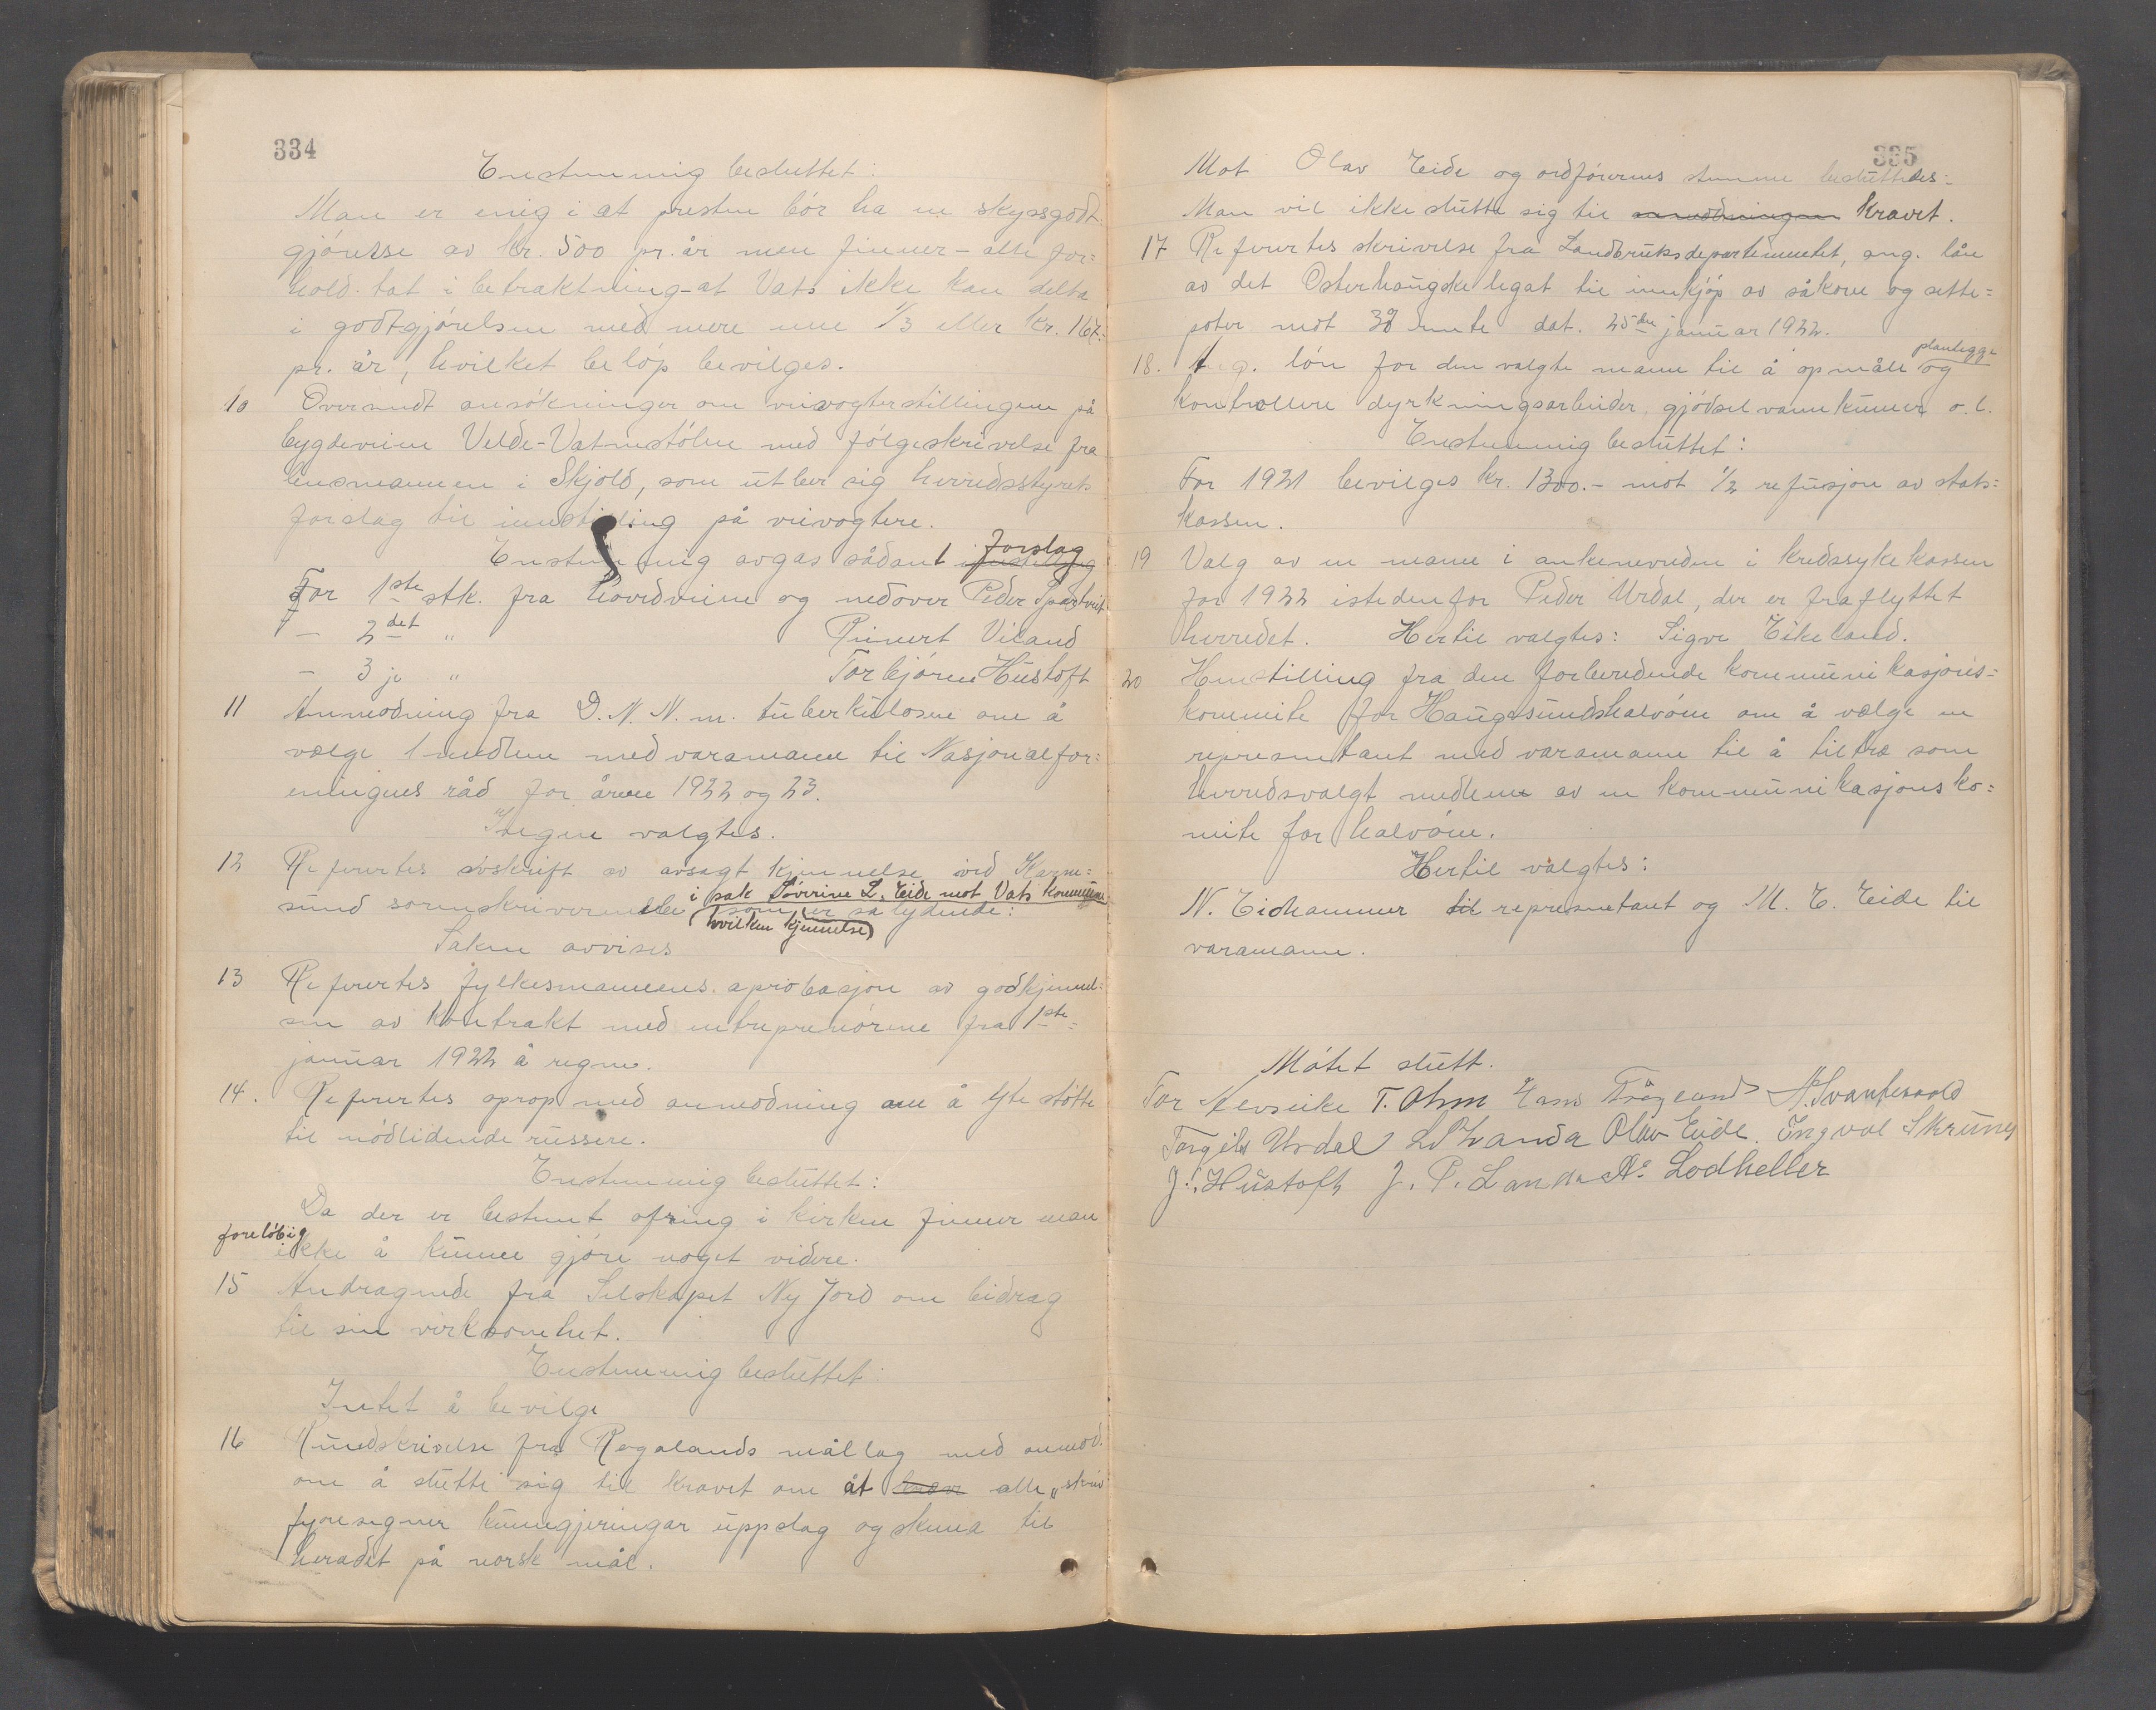 334
Enstemmig besluttet:
Man er enig i at presten bör ha en skyssgodt
gjörelse av kr. 500 pr. år men finner - alle for=
hold tat i betraktning - at Vats ikke kan delta
i godtgjörelsen med mere enn 1/3 eller kr. 167.-
pr. år, hvilket belöp bevilges.
10 Oversendt ansökninger om veivogterstillingene på
bygdeveien Velde-Vatnestölen med fölgeskrivelse fra
lensmannen i Skjold, som utber sig herredsstyrets
forslag til innstilling på veivogtere.
Enstemmig avgas sådant innstilling forslag
For 1ste stk. fra hovedveiene og nedover Peder
- 2det " Reinert Viland
- 3je " Torbjören Hustoft
11 Anmodning fra D. N. N. m. tuberkulosen om å
velge 1 medlem med varamann til Nasjonalfor=
eningens råd for årene 1922 og 23.
Ingen valgtes.
12 Refertes avskrift av avsagt kjennelse ved Karm=
sund sorenskriverembede i sak Söverine L. Eide mot Vats kommune
(hvilken kjennelse) som er sålydende:
Saken avvises
13 Refertes fylkesmannens aprobasjon av godkjennel=
sen av kontrakt med entreprenörene fra 1ste
januar 1922 å regne.
14. Refertes oprop med anmodning om å yte stötte
til nödlidende russere.
Enstemmig besluttet:
Da der er bestemt ofring i kirken finner man
foreløbig ikke å kunne gjöre noget videre.
15 Andragende fra Selskapet Ny Jord om bidrag
til sin virksomhet.
Enstemmig besluttet:
Intet å bevilge
16 Rundskrivelse fra Rogalands mållag med anmod.
om å slutte sig til kravet om at alle "skriv
fyresegner kunngjeringar uppslag og skema til
heradet på norsk mål.
335
Mot Olav Eide og ordförerens stemme besluttedes:
Man vil ikke slutte sig til anmodningen kravet.
17 Refertes skrivelse fra Landbruksdepartementet, ang. lån
av det Osterhaugske legat til innkjöp av såkorn og sette=
poter mot rente dat. 25de januar 1922.
18. Ang. lön for den valgte mann til å opmåle og planlegge
kontrollere dyrkningsarbeider, gjödselvannkummer o. l.
Enstemmig besluttet:
For 1921 bevilges kr. 1300.- mot 1/2 refusjon av stats=
kassen.
19 Valg av en mann i ankenevnden i kredssykekassen
for 1922 istedenfor Peder Urdal, der er fraflyttet
herredet. Hertil valgtes: Sigve Eikeland.
20 Henstilling fra den forberedende kommunikasjons=
komite for Haugesundshalvöen om å velge en
representant med varamann til å tiltre som
herredsvalgt medlem av en kommunikasjonsko=
mite for halvöen.
Hertil valgtes:
N. Eidhammer til representant og M. E. Eide til
varamann.
Mötet slutt.
Tor T. Ohm Hans
Torgils Urdal Olav Eide. Ingval
J. Hustoft J. P. Landa